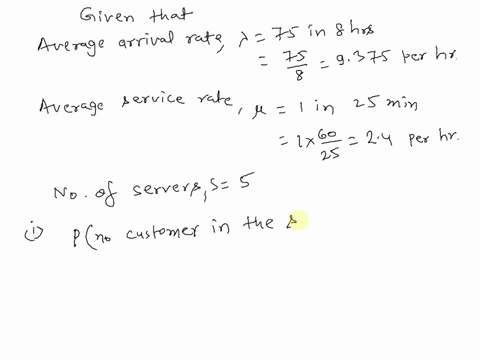 Given that
Average arrival rate, λ = 75 in 8 hrs
= 75/8 = 9.375 per hr.
Average service rate, μ = 1 in 25 min
= 1 × 60/25 = 2.4 per hr.
No. of servers, s = 5
i) P(no customer in the s